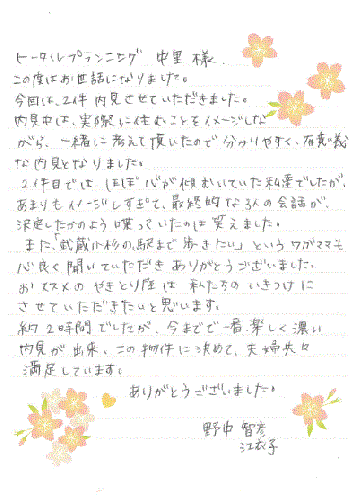 トータルプランニング 中里 様
この度はお世話になりました。
今回は、2件内見させていただきました。
内見中は、実際に住むことをイメージしな
がら、一緒に考えて頂いたので分かりやすく、有意義
な内見となりました。
2件目では、ほぼ心が傾いていた私達でしたが、
あまりもイメージしすぎて、最終的な3人の会話が、
決定したかのよう喋っていたのは笑えました。
また、「武蔵小杉の駅まで歩きたい」というワガママも
心良く聞いていただきありがとうございました。
おススメのやきとり屋は私たちのいきつけに
させていただきたいと思います。
約2時間でしたが、今までで一番楽しく濃い
内見が出来、この物件に決めて、夫婦共々
満足しています。
ありがとうございました。
野中 智彦
江衣子